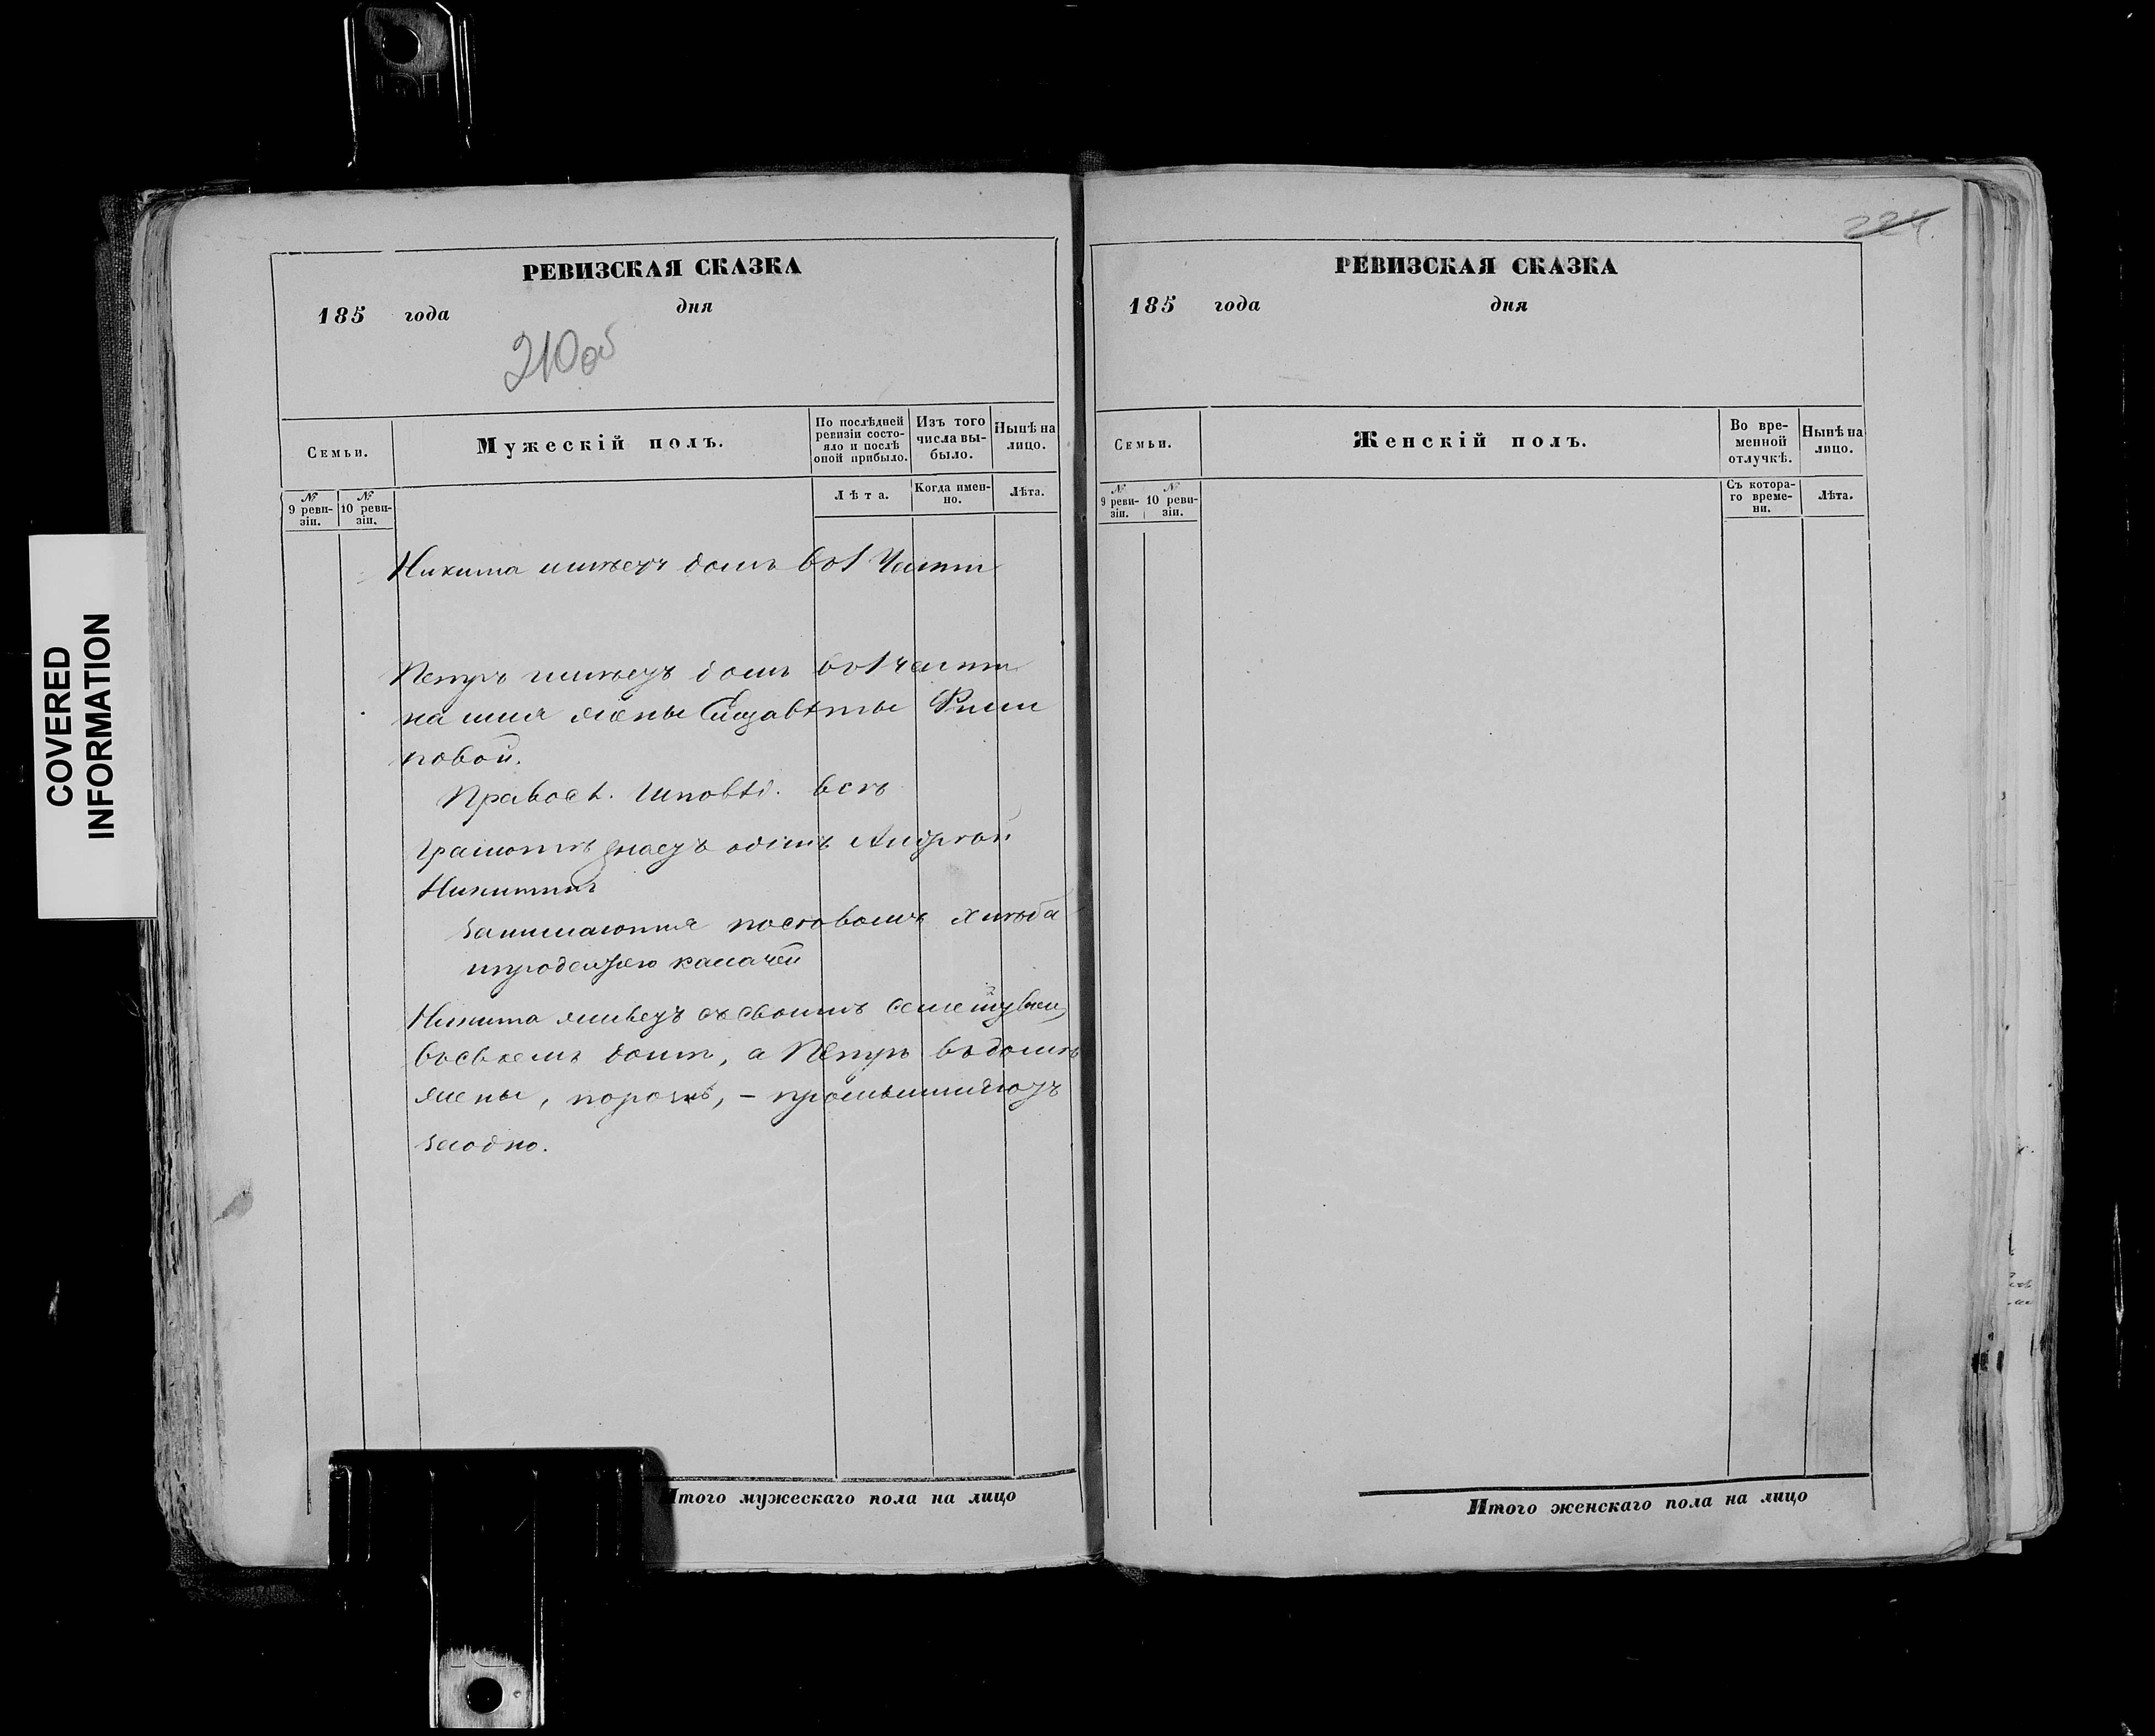 COVERED
INFORMATION
РЕВИЗСКАЯ СКАЗКА
185 года дня
210 об
Семьи.
Мужескій полъ.
По послѣдней ревизіи состояло и послѣ оной прибыло.
Изъ того числа выбыло.
Нынѣ на лицо.
№ 9 ревизіи.
№ 10 ревизіи.
Лѣта.
Когда именно.
Лѣта.
Никита имѣетъ домъ во 1 Части
Петръ имѣетъ домъ во 1 части
на имя жены Елизаветы Фили
повой.
Правосл. Исповѣд. всѣ
Грамотѣ знаетъ одинъ Андрей
Никитинъ
Занимаются хлѣба
и продажею калачей
Никита живетъ съ своимъ
въ своемъ домѣ, а Петръ въ домѣ
жены, порознь, –
заодно.
Итого мужескаго пола на лицо
224.
РЕВИЗСКАЯ СКАЗКА
185 года дня
Семьи.
Женскій полъ.
Во временной отлучкѣ.
Нынѣ на лицо.
№ 9 ревизіи.
№ 10 ревизіи.
Съ котораго времени.
Лѣта.
Итого женскаго пола на лицо